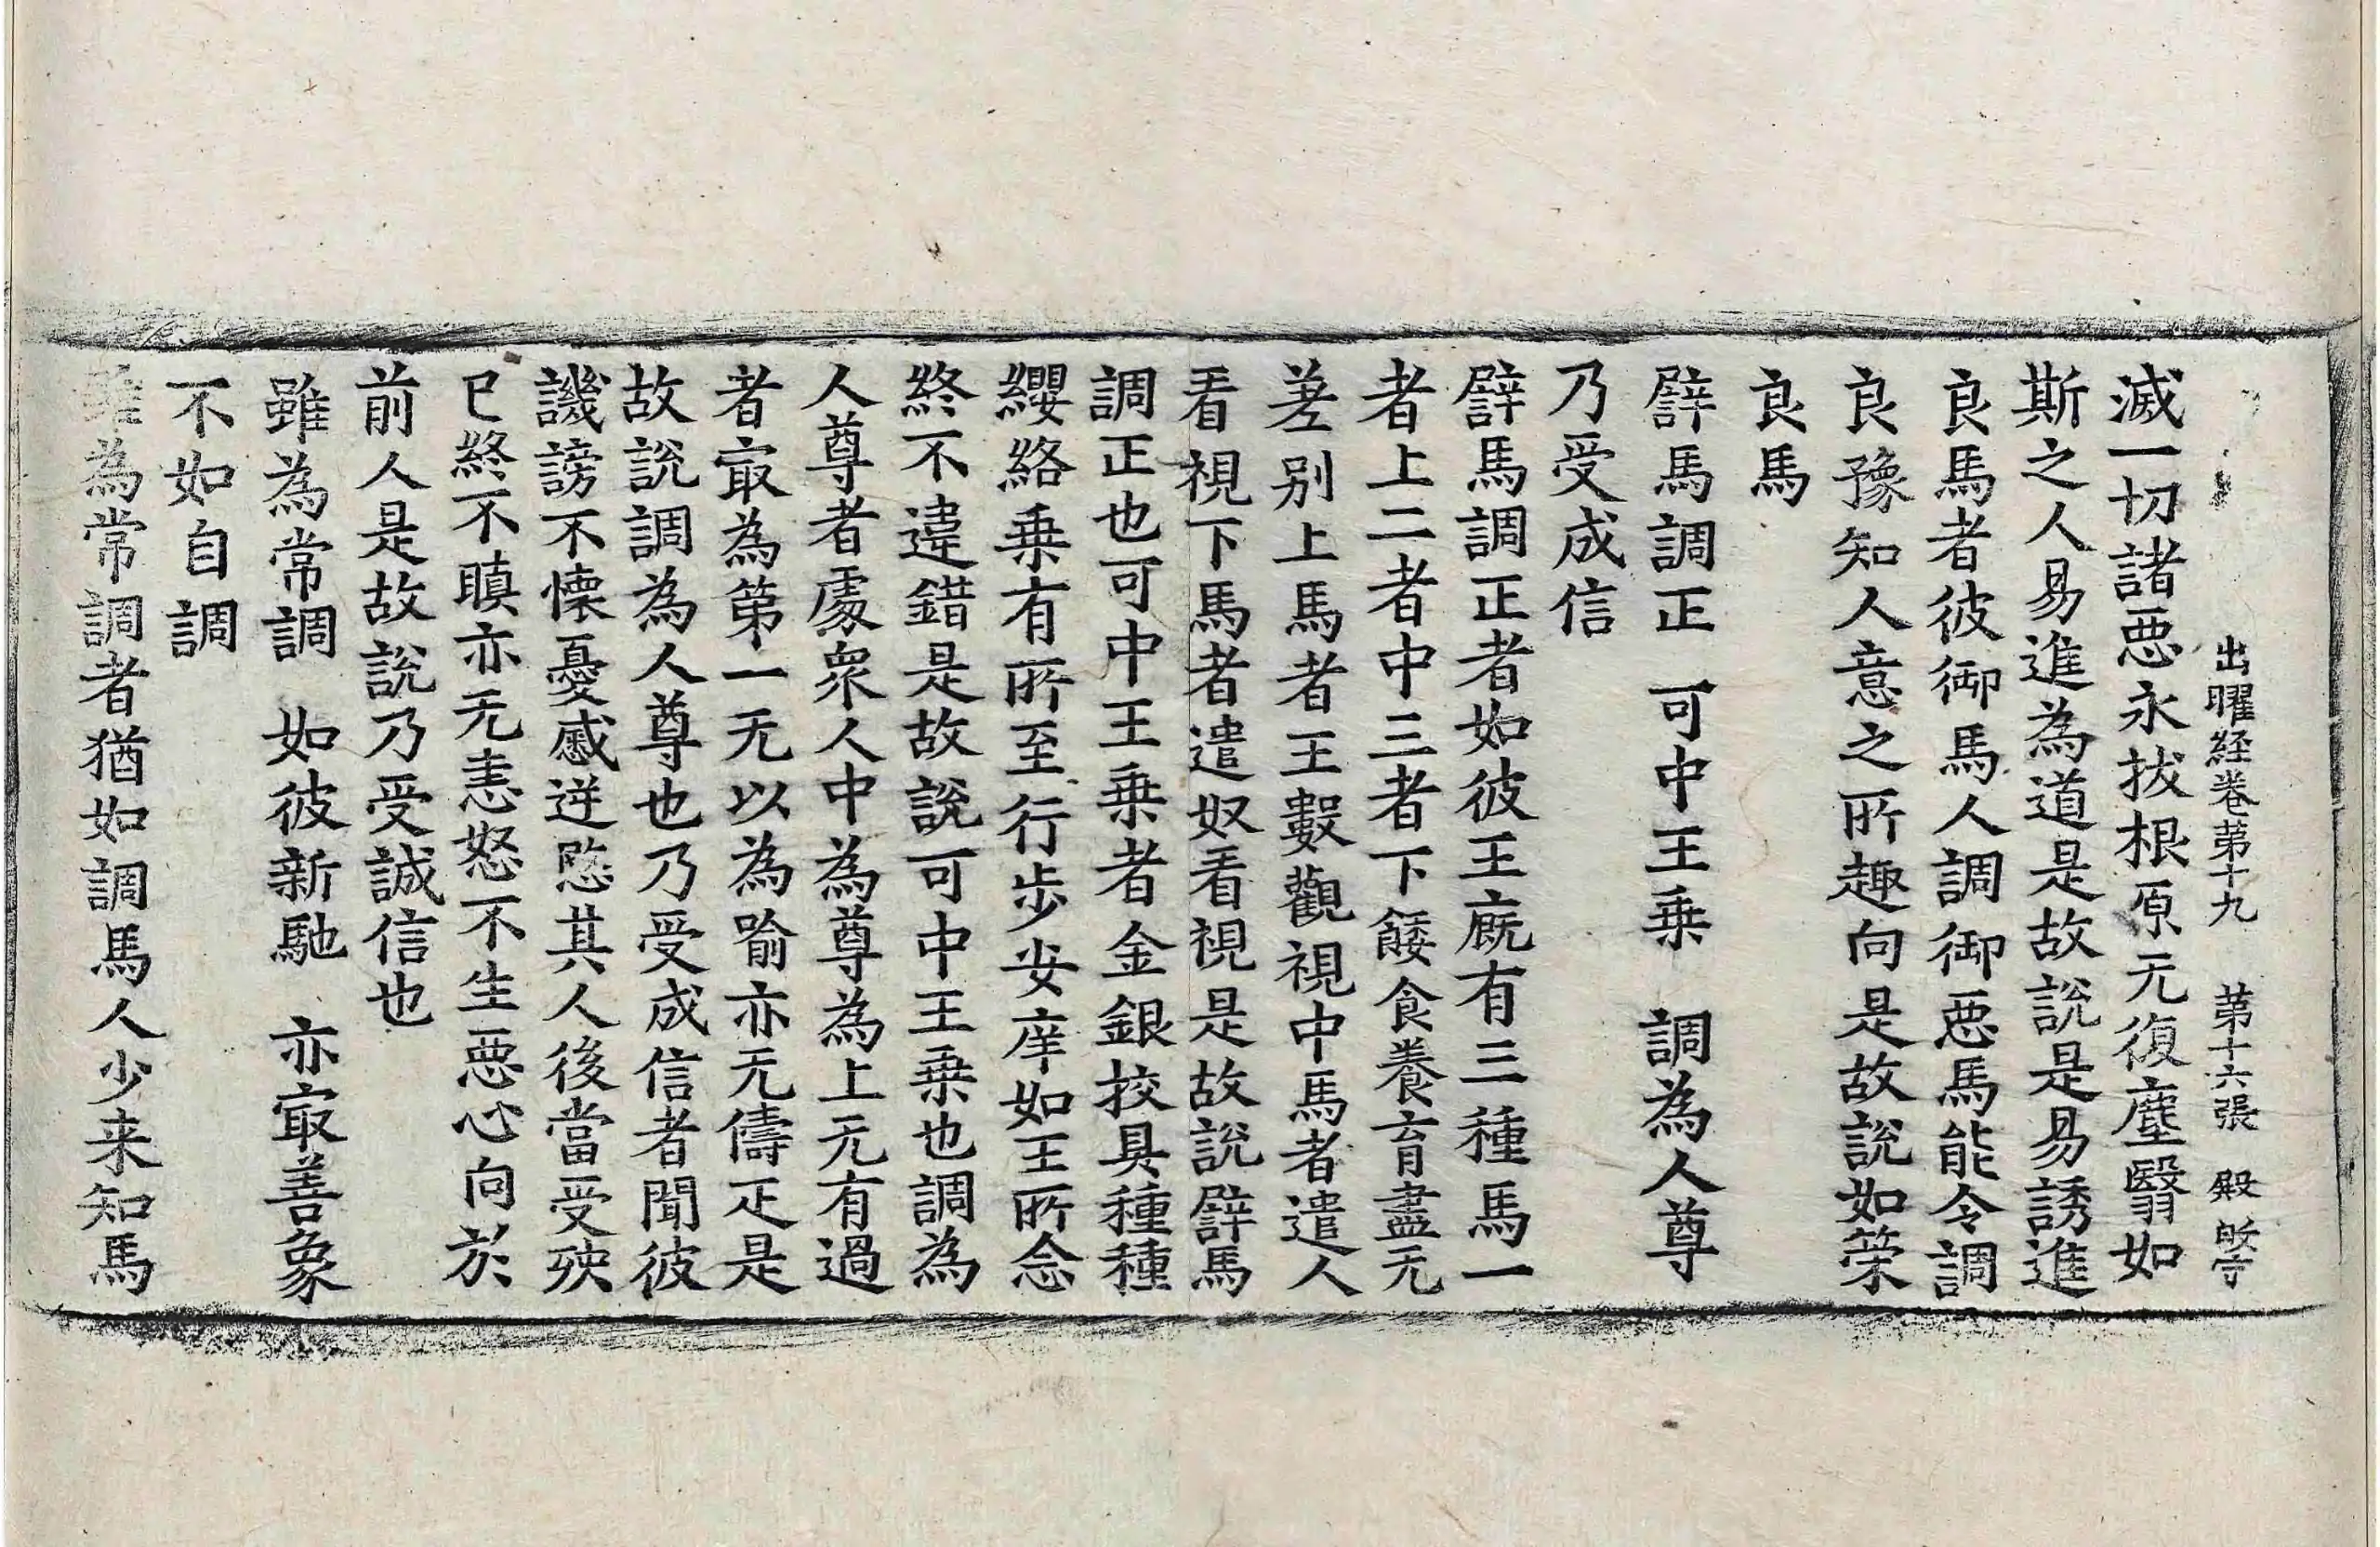 出曜経卷苐十九 苐十六張 殿
滅一切諸惡永拔根原无復塵翳如
斯之人易進為道是故說是易誘進
良馬者彼御馬人調御惡馬能令調
良豫知人意之所趣向是故說如策
良馬
譬馬調正 可中王乗 調為人尊
乃受成信
譬馬調正者如彼王廐有三種馬一
者上二者中三者下餧食養育盡无
差别上馬者王數觀視中馬者遣人
看視下馬者遣奴看視是故說譬馬
調正也可中王乗者金銀挍具種種
纓絡乗有所至行步安庠如王所念
終不違錯是故說可中王乗也調為
人尊者處衆人中為尊為上无有過
者寂為第一无以為喻亦无儔疋是
故說調為人尊也乃受成信者聞彼
譏謗不懷憂慼逆愍其人後當受殃
已終不瞋亦无恚怒不生惡心向於
前人是故說乃受誠信也
雖為常調 如彼新馳 亦寂善象
不如自調
雖為常調者猶如調馬人少来知馬